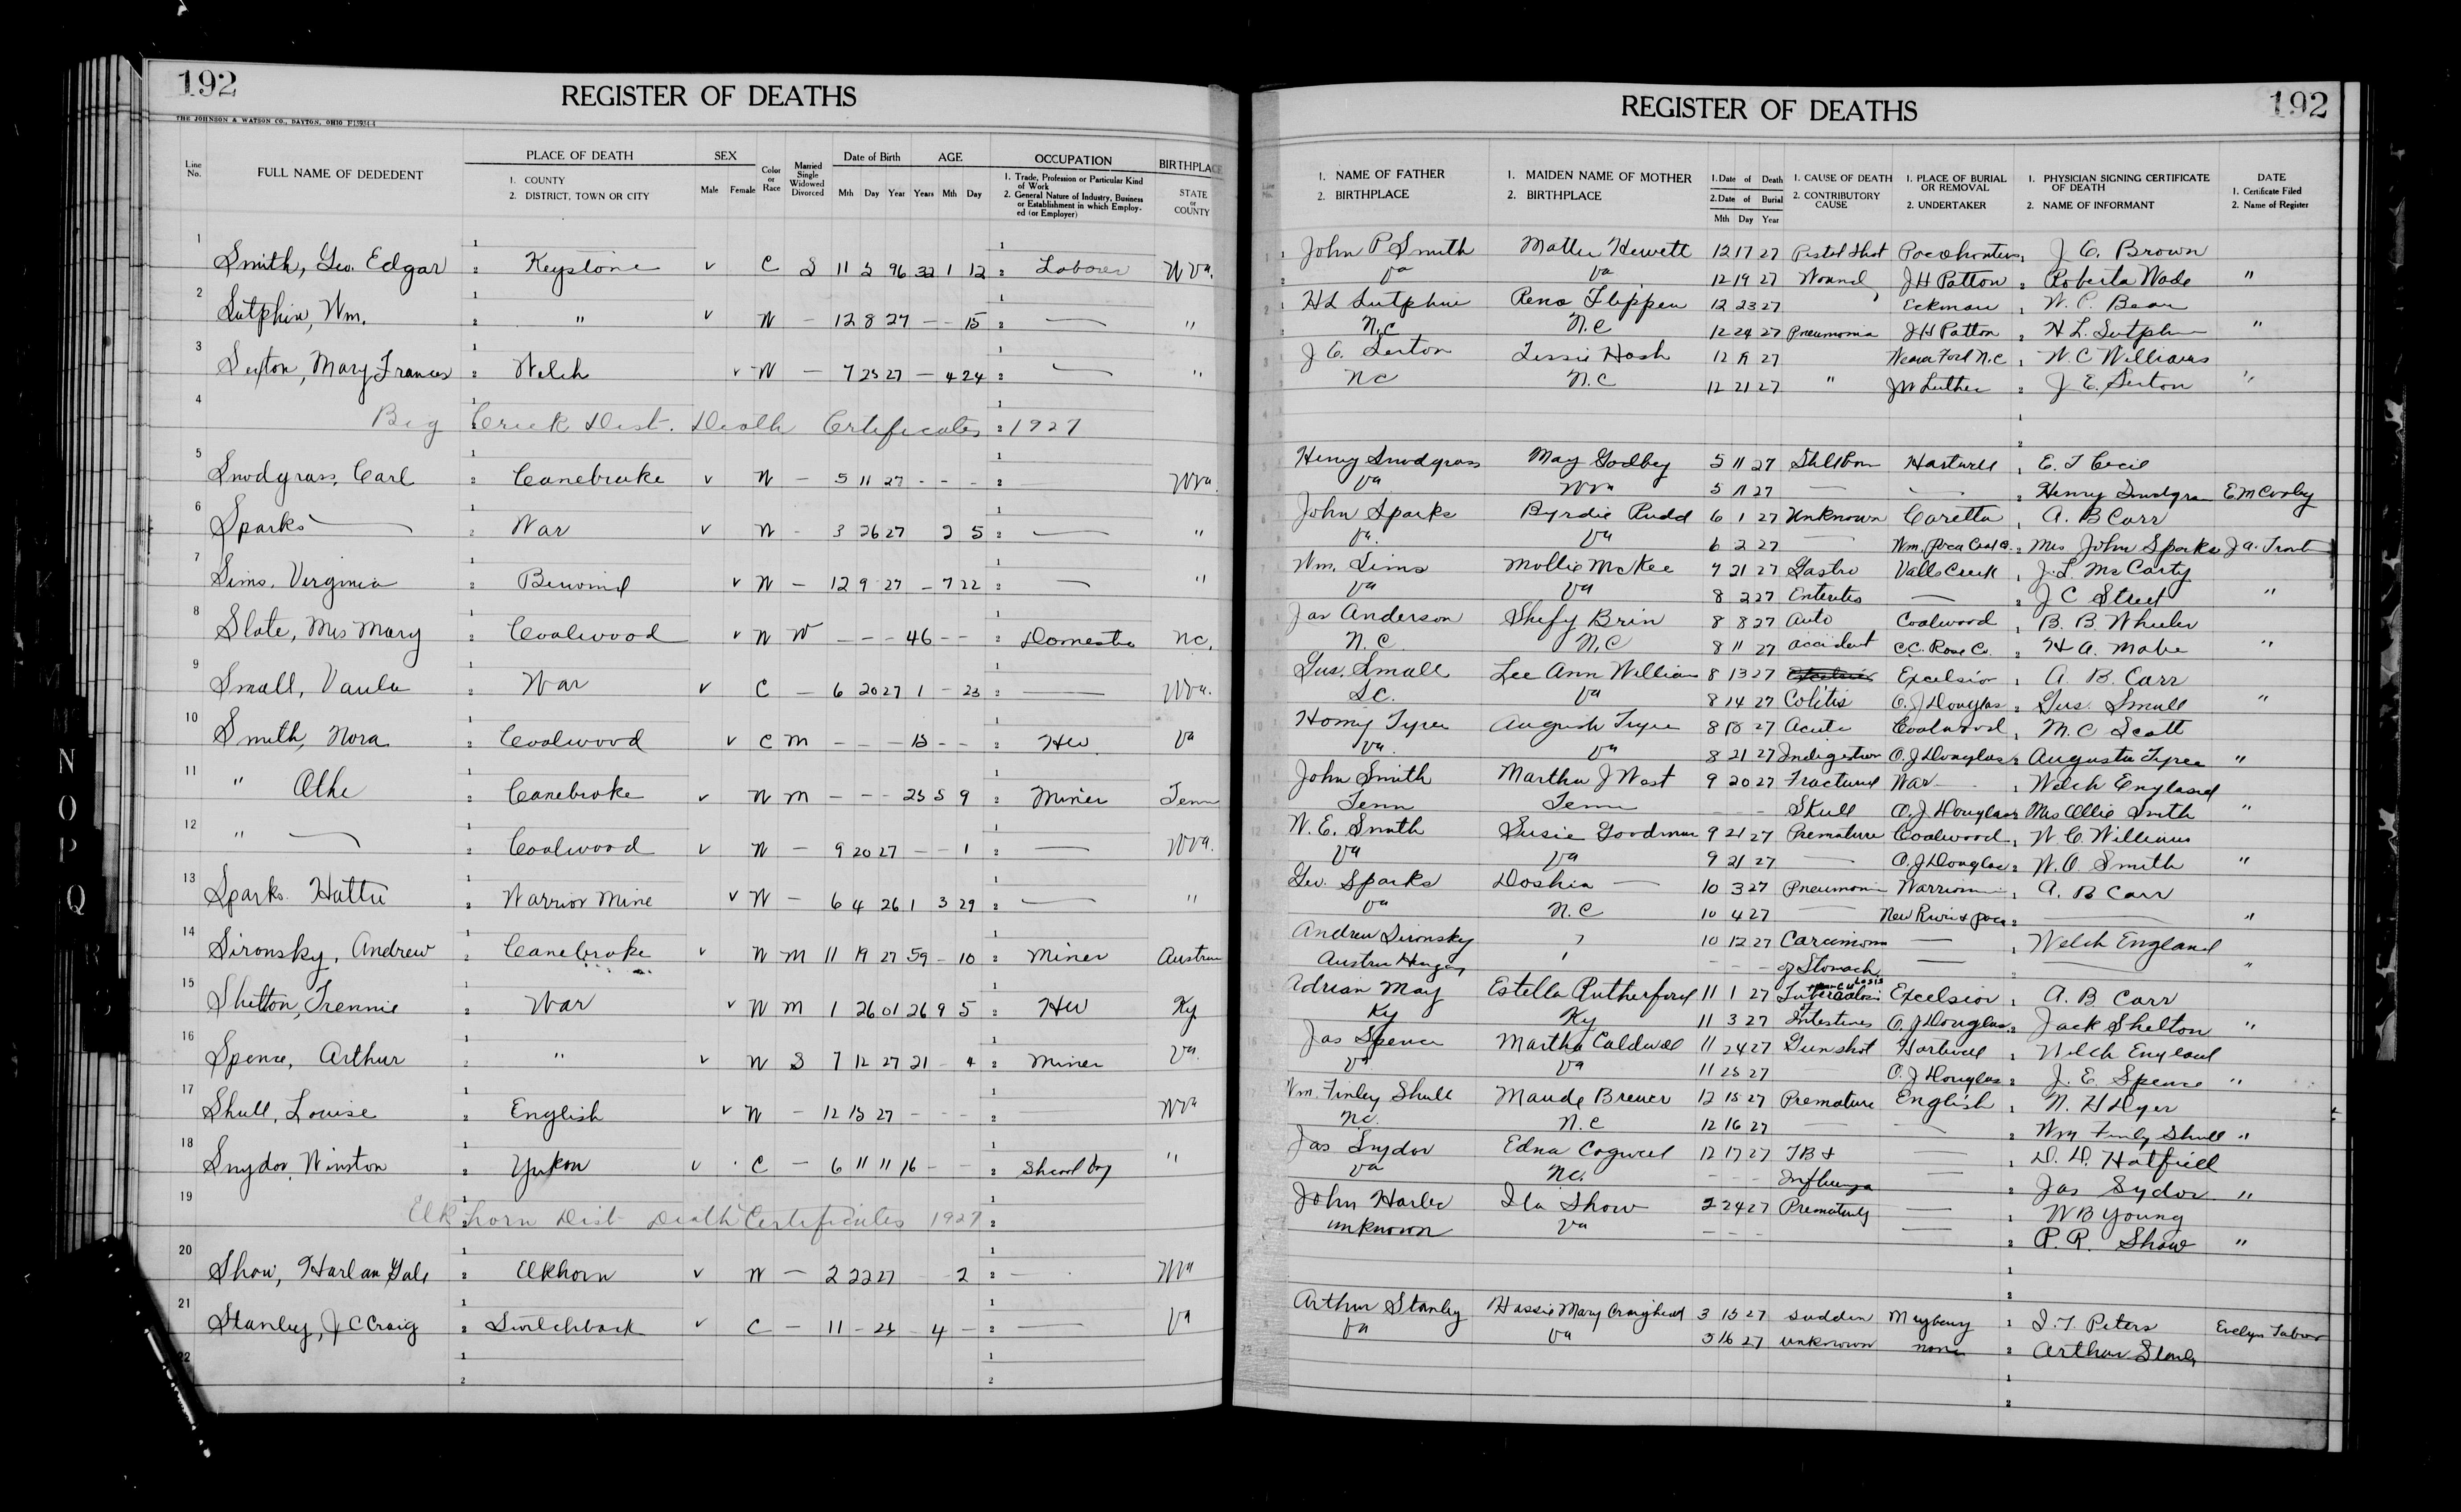 192
REGISTER OF DEATHS
THE JOHNSON & WATSON CO., DAYTON, OHIO
Line No. FULL NAME OF DEDEDENT PLACE OF DEATH 1. COUNTY 2. DISTRICT, TOWN OR CITY SEX Male Female Color or Race Married Single Widowed Divorced Date of Birth Mth Day Year AGE Years Mth Day OCCUPATION 1. Trade, Profession or Particular Kind of Work 2. General Nature of Industry, Business or Establishment in which Employed (or Employer) BIRTHPLACE STATE or COUNTY
1 Smith, Geo. Edgar Keystone v C S 11 5 96 32 1 12 Laborer WVa.
2 Sutphin, Wm. " v W — 12 8 27 — — 15 — "
3 Sexton, Mary Frances Welch v W — 7 25 27 — 4 24 — "
4 Big Creek Dist. Death Certificates 1927
5 Snodgrass, Carl Canebrake v W — 5 11 27 - - - WVa.
6 Sparks — War v W - 3 26 27 2 5 — "
7 Sims, Virginia Berwind v W — 12 9 27 — 7 22 — "
8 Slate, Mrs Mary Coalwood v W W — — — 46 — — Domestic NC.
9 Small, Vaula War v C — 6 20 27 1 — 23 — WVa.
10 Smith, Nora Coalwood v C M — — — 18 — — HW Va
11 " Canebrake v W M — — — 25 5 9 Miner Tenn
12 " — Coalwood v W — 9 20 27 — — 1 — WVa.
13 Sparks Hattie Warrior Mine v W — 6 4 26 1 3 29 — "
14 Sironsky, Andrew Canebrake v W M 11 19 27 59 — 10 Miner Austria
15 Shelton, Trennie War v W M 1 26 01 26 9 5 HW Ky
16 Spence, Arthur " v W S 7 12 27 21 - 4 Miner Va.
17 Shull, Louise English v W — 12 15 27 - - - WVa
18 Snydor, Winston Yukon v C — 6 11 11 16 - — School boy "
19 Elkhorn Dist Death Certificates 1927
20 Show, Harlan Gale Elkhorn v W — 2 22 27 2 — WVa
21 Stanley, J C Craig Switchback v C — 11 — 23 - 4 — — Va
22
192
REGISTER OF DEATHS
1. NAME OF FATHER 2. BIRTHPLACE 1. MAIDEN NAME OF MOTHER 2. BIRTHPLACE 1. Date of Death 2. Date of Burial Mth Day Year 1. CAUSE OF DEATH 2. CONTRIBUTORY CAUSE 1. PLACE OF BURIAL OR REMOVAL 2. UNDERTAKER 1. PHYSICIAN SIGNING CERTIFICATE OF DEATH 2. NAME OF INFORMANT DATE 1. Certificate Filed 2. Name of Register
John P Smith Mattie Hewett 12 17 27 Pistol Shot Pocohontas J. C. Brown
Va Va 12 19 27 Wound J H Patton Roberta Wade "
H L Sutphin Rena Flippen 12 23 27 Eckman W. C. Bean
N.C N.C 12 24 27 Pneumonia J H Patton H L. Sutphin "
J E. Sexton Lessie Hash 12 19 27 N.C W. C Williams
NC N.C 12 21 27 " J W Luther J. E. Sexton "
Henry Snodgrass May Godbey 5 11 27 Stillborn Hartwell E. T Cecil
Va WVa 5 11 27 — — Henry Snodgrass E M Cooley
John Sparks Byrdie Rudd 6 1 27 Unknown Caretta A. B Carr
Va. Va 6 2 27 — Mrs John Sparks J. A. Trout
Wm. Sims Mollie McKee 7 21 27 Gastro Valls Creek J. L. McCarty
Va Va 8 2 27 Enteritis — J C Street "
Jas Anderson Shefy Brin 8 8 27 Auto Coalwood B. B. Wheeler
N.C. N.C 8 11 27 accident C.C. Rose Co. H A. Mabe "
Gus. Small Lee Ann William 8 13 27 Excelsior A. B. Carr
SC. Va 8 14 27 Colitis O. J Douglas Gus. Small "
Homy Tyree August Tyree 8 18 27 Acute Coalwood M. C Scott
Va. Va 8 21 27 Indigestion O. J Douglas Augusta Tyree "
John Smith Martha J West 9 20 27 Fractured War Welch England
Tenn Tenn - - - Skull O. J Douglas Mrs Ollie Smith "
W. E. Smith Susie Goodman 9 21 27 Premature Coalwood W. C. Williams
Va Va 9 21 27 — O. J Douglas W. O. Smith "
Geo. Sparks Doshia — 10 3 27 Pneumonia Warrior A. B Carr
Va N.C 10 4 27 — New River & Poca — "
Andrew Sironsky ? 10 12 27 Carcinoma — Welch England
Austria Hungary - - - of Stomach — — "
Adrian May Estella Rutherford 11 1 27 Tuberculosis Excelsior A. B. Carr
Ky Ky 11 3 27 of Intestines O. J Douglas Jack Shelton "
Jas Spence Martha Caldwell 11 24 27 Gunshot Hartwell Welch England
Va Va 11 25 27 — O. J Douglas J. E. Spence "
Wm. Finley Shull Maude Brewer 12 15 27 Premature English N. H Dyer
NC. N.C 12 16 27 — — Wm Finly Shull "
Jas Snydor Edna Cogwell 12 17 27 TB & — D. D. Hatfield
Va NC. - - - Influenza — Jas Sydor "
John Harler Ila Show 2 24 27 Prematurly — W B Young
unknown Va - - - — P. R. Show "
Arthur Stanley Hassie Mary Craighead 3 15 27 sudden Mayberry S. T. Peters Evelyn Tabor
Va Va 3 16 27 unknown none Arthur Stanly
N
O
P
Q
R